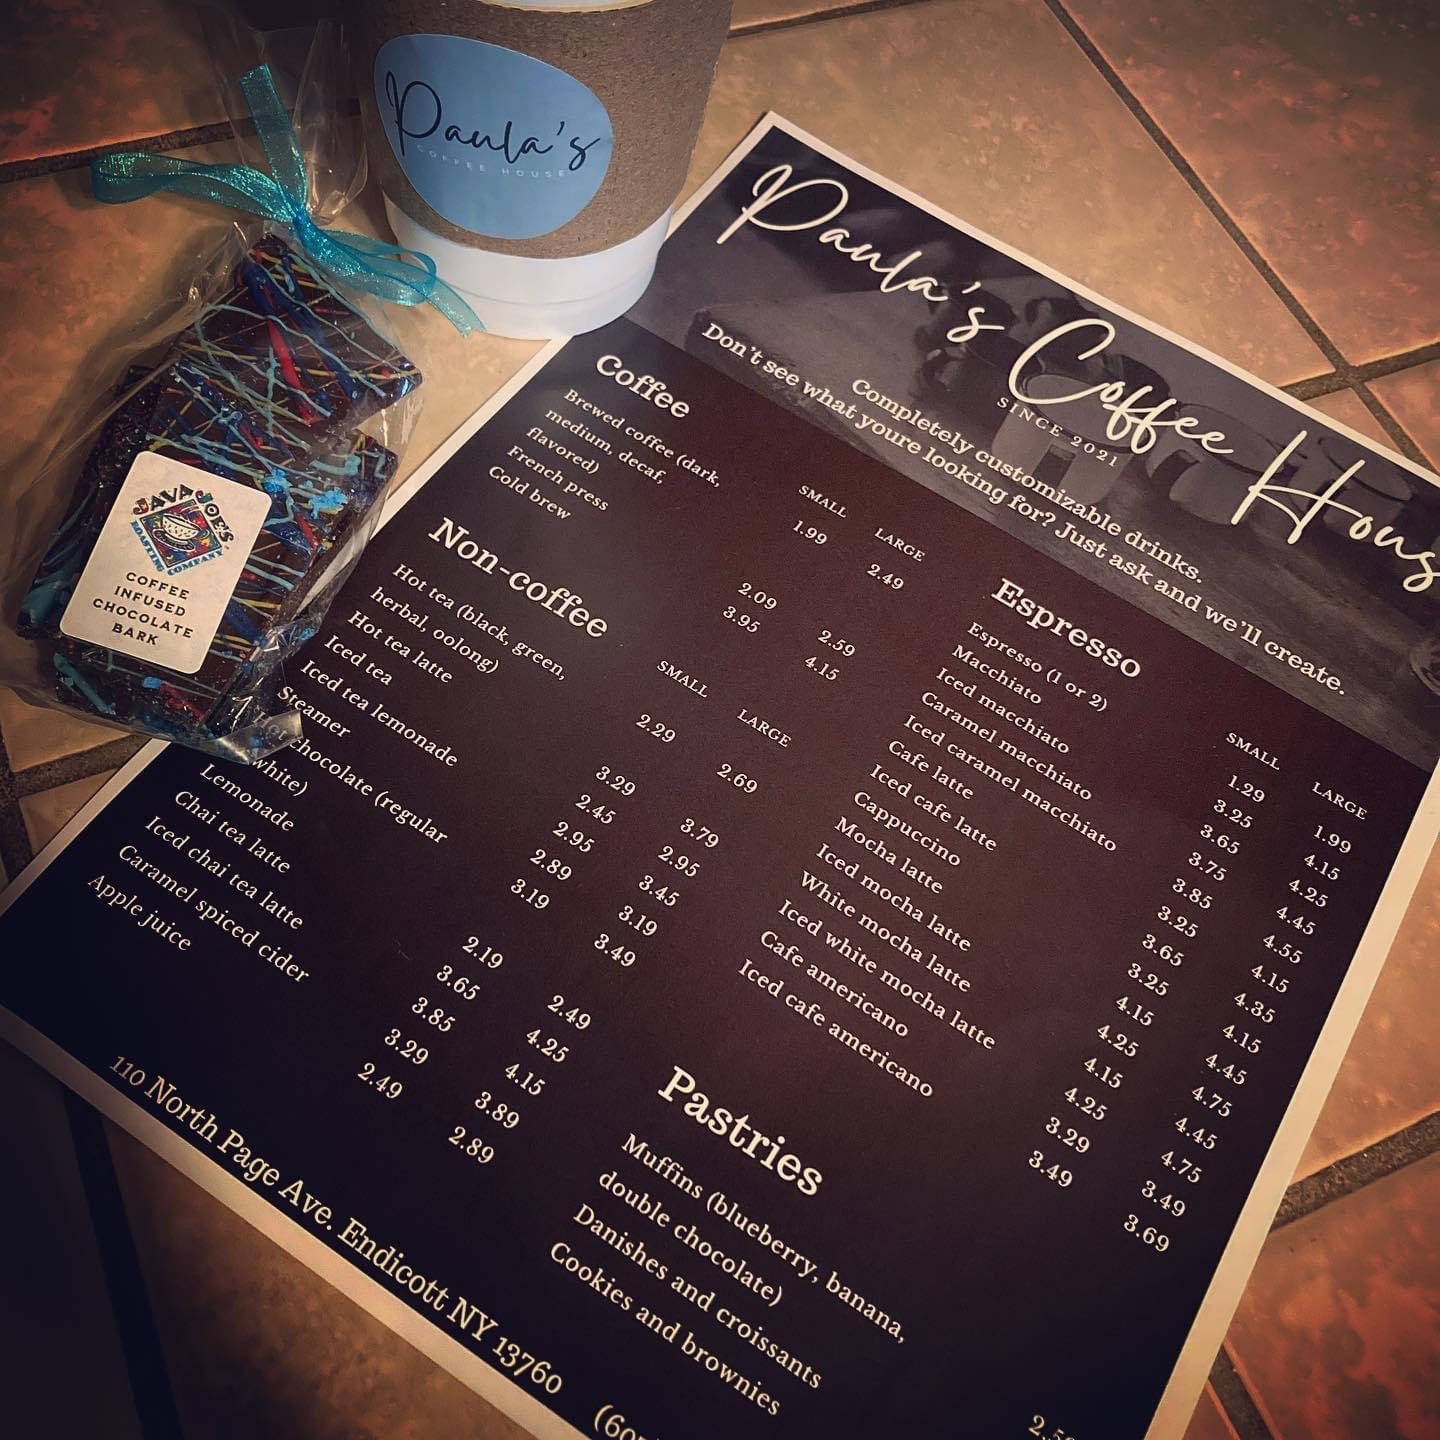 Paula's
COFFEE HOUSE
JAVA JOE'S
ROASTING COMPANY
COFFEE
INFUSED
CHOCOLATE
BARK
Paula's Coffee Hous
SINCE 2021
Completely customizable drinks.
Don't see what youre looking for? Just ask and we'll create.
Coffee
SMALL LARGE
Brewed coffee (dark, 1.99 2.49
medium, decaf,
flavored)
French press 2.09 2.59
Cold brew 3.95 4.15
Non-coffee
SMALL LARGE
Hot tea (black, green, 2.29 2.69
herbal, oolong)
Hot tea latte 3.29 3.79
Iced tea 2.45 2.95
Iced tea lemonade 2.95 3.45
Steamer 2.89 3.19
chocolate (regular 3.19 3.49
white)
Lemonade 2.19 2.49
Chai tea latte 3.65 4.25
Iced chai tea latte 3.85 4.15
Caramel spiced cider 3.29 3.89
Apple juice 2.49 2.89
Espresso
SMALL LARGE
Espresso (1 or 2) 1.29 1.99
Macchiato 3.25 4.15
Iced macchiato 3.65 4.25
Caramel macchiato 3.75 4.45
Iced caramel macchiato 3.85 4.55
Cafe latte 3.25 4.15
Iced cafe latte 3.65 4.35
Cappuccino 3.25 4.15
Mocha latte 4.15 4.45
Iced mocha latte 4.25 4.75
White mocha latte 4.15 4.45
Iced white mocha latte 4.25 4.75
Cafe americano 3.29 3.49
Iced cafe americano 3.49 3.69
Pastries
Muffins (blueberry, banana,
double chocolate)
Danishes and croissants
Cookies and brownies
110 North Page Ave. Endicott NY 13760